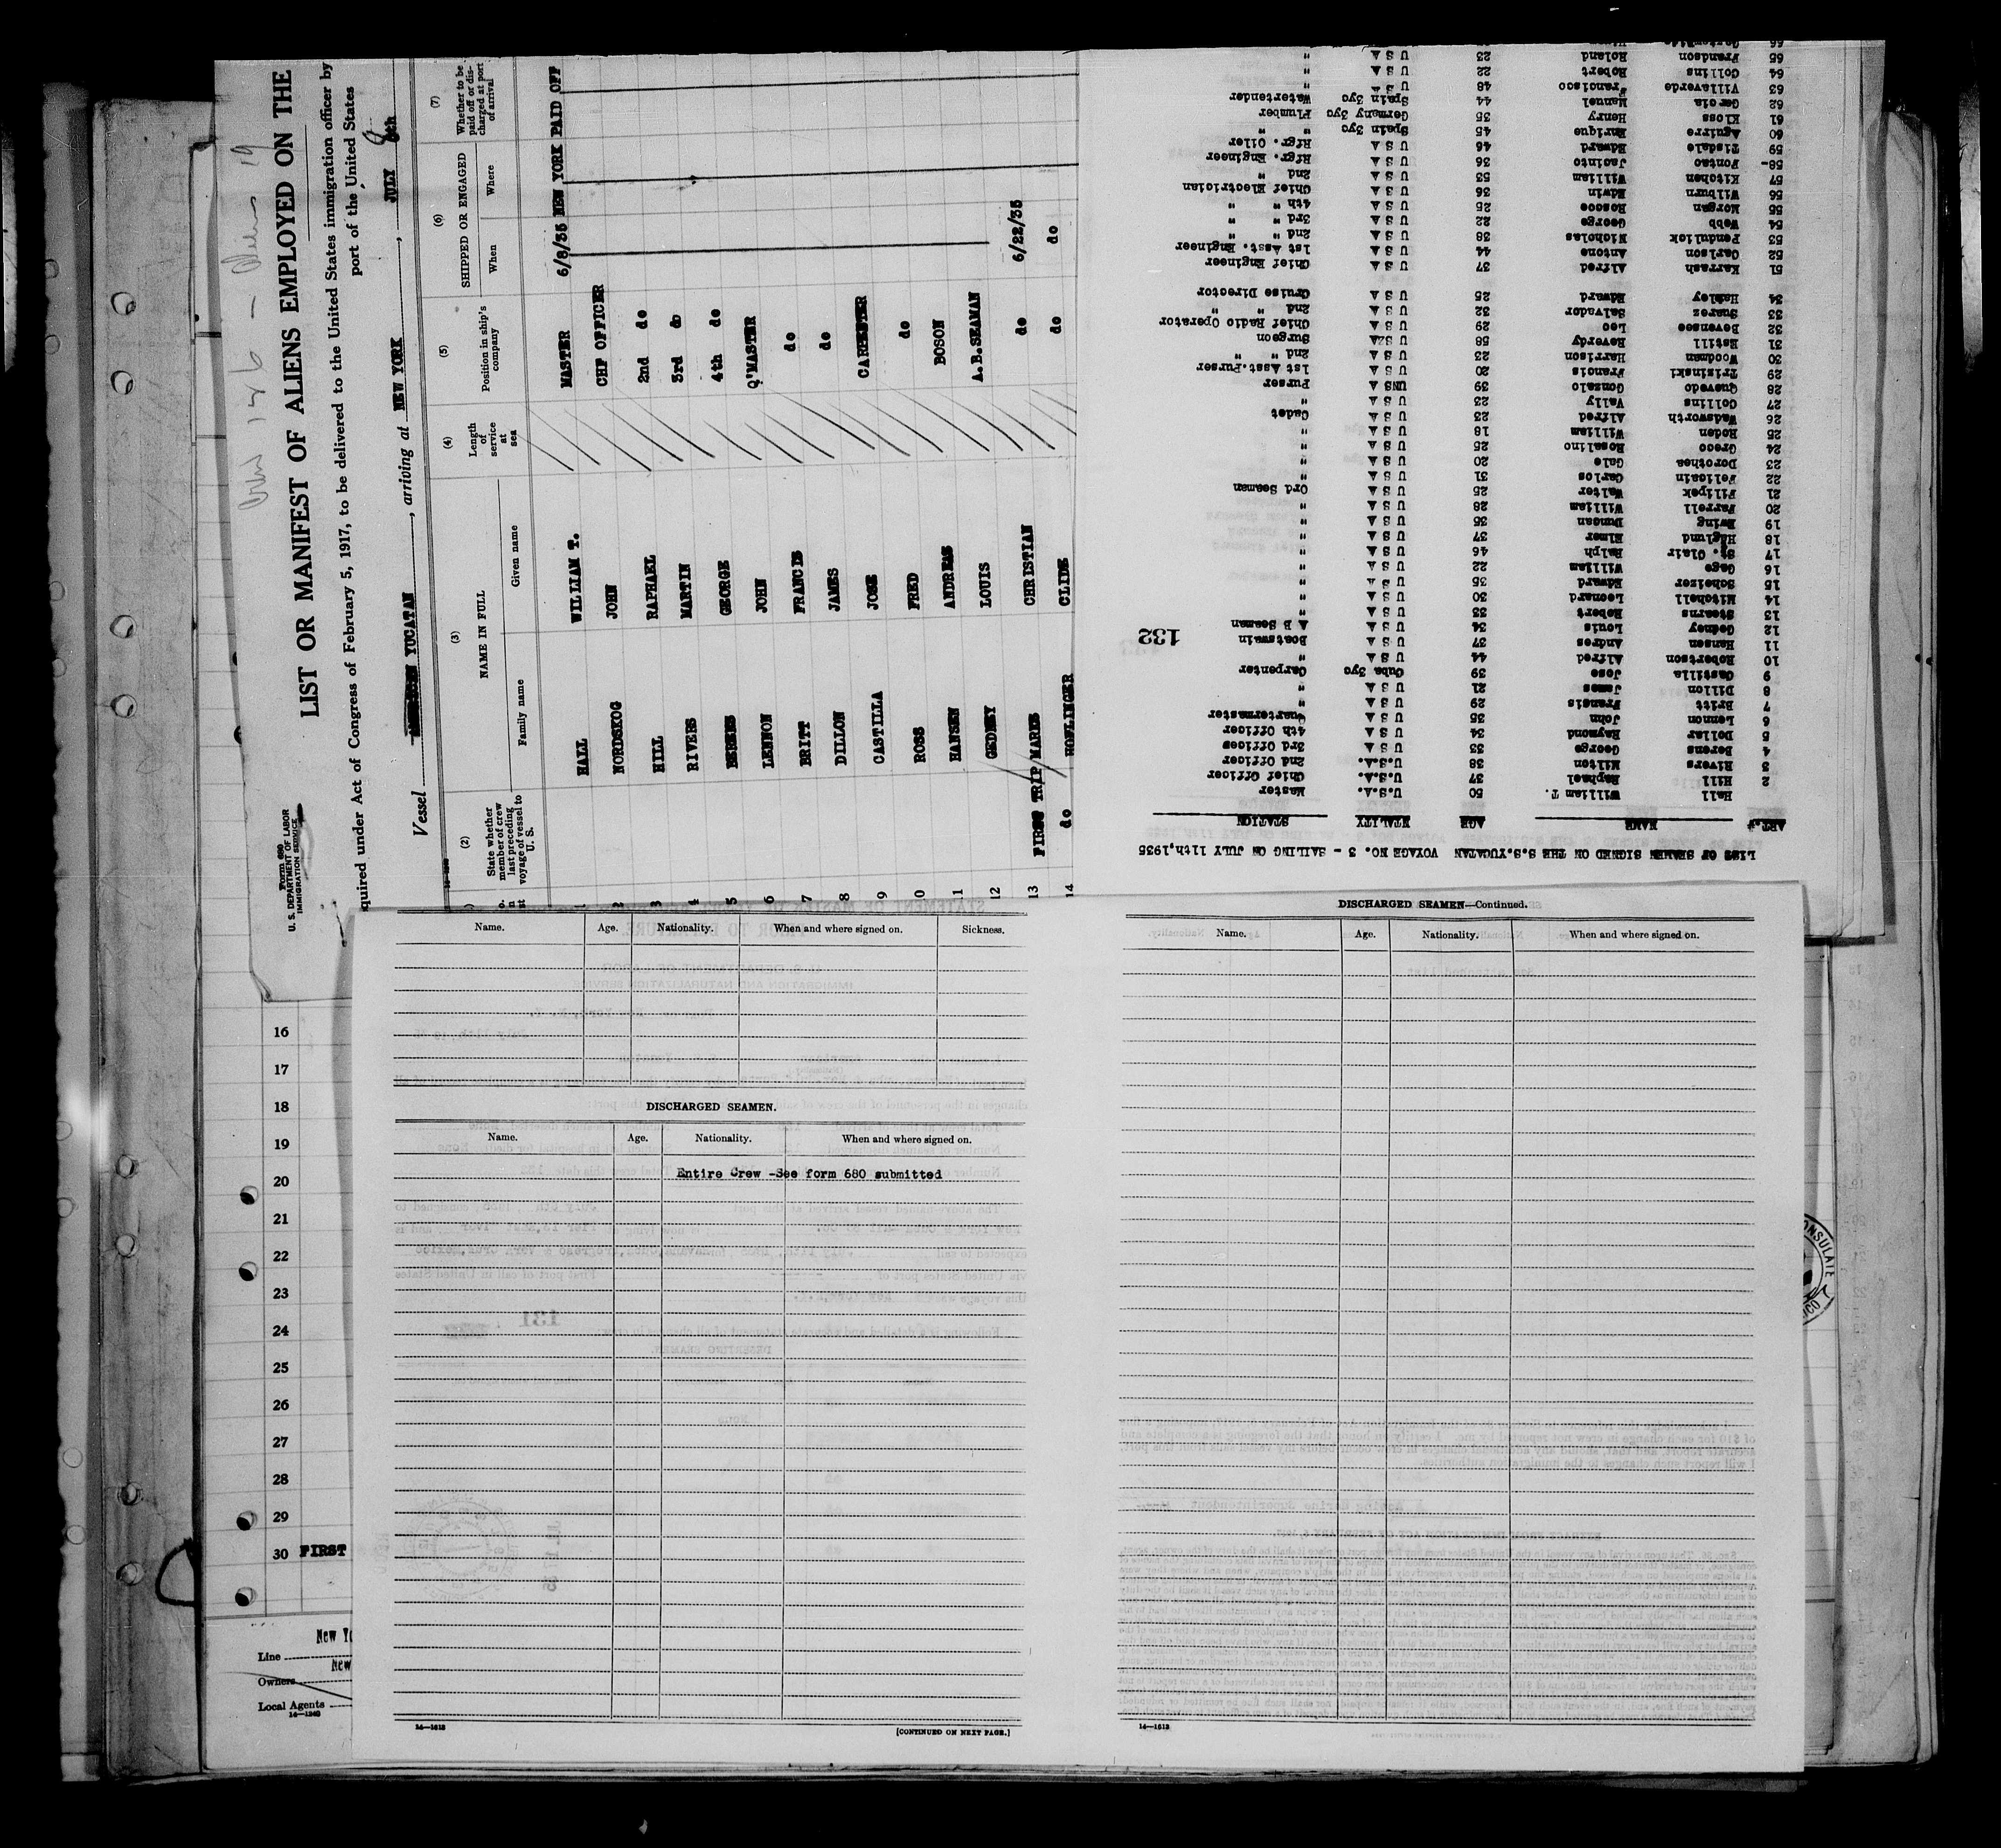 Form 680
U. S. DEPARTMENT OF LABOR
IMMIGRATION SERVICE
LIST OR MANIFEST OF ALIENS EMPLOYED ON THE
quired under Act of Congress of February 5, 1917, to be delivered to the United States immigration officer by
port of the United States
Vessel YUCATAN, arriving at NEW YORK, JULY 8th
(2) (3) (4) (5) (6) (7)
State whether member of crew last preceding voyage of vessel to U. S.
NAME IN FULL
Family name Given name
Length of service at sea
Position in ship's company
SHIPPED OR ENGAGED
When Where
Whether to be paid off or discharged at port of arrival
1 HALL WILLIAM T. MASTER 6/8/35 NEW YORK PAID OFF
2 NORDSKOG JOHN CHF OFFICER
3 HILL RAPHAEL 2nd do
4 RIVERS MARTIN 3rd do
5 BERENS GEORGE 4th do
6 LENNON JOHN Q'MASTER
7 BRITT FRANCIS do
8 DILLON JAMES do
9 CASTILLA JOSE CARPENTER
10 ROSS FRED do
11 HANSEN ANDREAS BOSON
12 GEDNEY LOUIS A.B.SEAMAN
13 FIRST TRIP MARKE CHRISTIAN do 6/22/35
14 do HOWLINGER CLIDE do do
LIST OF SEAMEN SIGNED ON THE S.S.YUCATAN VOYAGE NO. 3 - SAILING ON JULY 11th,1935
ART.# NAME AGE NTALITY STATION
Hall William T. 50 U.S.A. Master
2 Hill Raphael 37 U.S.A. Chief Officer
3 Rivers Milton 38 U.S.A. 2nd Officer
4 Berens George 33 U S A 3rd Officer
5 Dollar Raymond 34 U S A 4th Officer
6 Lennon John 35 U S A Quartermaster
7 Britt Francis 29 U S A "
8 Dillon James 21 U S A "
9 Castilla Jose 39 Cuba 3yc Carpenter
10 Robertson Alfred 44 U S A "
11 Hansen Andres 37 U S A Boatswain
12 Gedney Louis 34 U S A A B Seaman
132
13 Stearns Robert 33 U S A "
14 Mitchell Leonard 30 U S A "
15 Scheizer Edward 35 U S A "
16 Gage William 22 U S A "
17 St. Clair Ralph 46 U S A "
18 Haglund Elmer 37 U S A "
19 Ewing Duncan 35 U S A "
20 Farrell William 28 U S A "
21 Filipek Walter 25 U S A Ord Seaman
22 Felicain Carlos 31 U S A "
23 Dorothea Gale 20 U S A "
24 Greco Rosalino 25 U S A "
25 Roden William 18 U S A "
26 Wadsworth Alfred 23 U S A Cadet
27 Collins Vally 23 U S A "
28 Quevedo Gonzalo 39 UNS A Purser
29 Trizinski Francis 20 U S A 1st Asst.Purser
30 Woodman Harrison 23 U S A 2nd " "
31 Estill Beverdy 58 U SZA Surgeon
32 Bevensee Leo 29 U S A Chief Radio Operator
33 Suarez Salvador 32 U S A 2nd " "
34 Hanley Edward 25 U S A Cruise Director
51 Karrash Alfred 37 U S A Chief Engineer
52 Carlson Antone 44 U S A 1st Asst. Engineer
53 Pendulick Nicholas 38 U S A 2nd " "
54 Webb George 22 U S A 3rd " "
55 Morgan Roscoe 25 U S A 4th " "
56 Wilburn Edwin 36 U S A Chief Electrician
57 Kitchen William 53 U S A 2nd "
58- Pontao Jacinto 36 U S A Rfgr. Engineer
59 Tisdale Edward 46 U S A Rfgr. Oiler
60 Aguirre Enrique 45 Spain 3yc " "
61 Kloss Henry 35 Germany 3yc Plumber
62 Garcia Manuel 44 Spain 3yc Watertender
63 Villaverde Francisco 48 U S A "
64 Collins Robert 22 U S A "
65 Frandson Roland 23 U S A "
66
Name. Age. Nationality. When and where signed on. Sickness.
DISCHARGED SEAMEN.
Name. Age. Nationality. When and where signed on.
Entire Crew -See form 680 submitted
14—1613
[CONTINUED ON NEXT PAGE.]
DISCHARGED SEAMEN—Continued.
Name. Age. Nationality. When and where signed on.
14—1613
16
17
18
19
20
21
22
23
24
25
26
27
28
29
30 FIRST
Line New Yo
Owners New
Local Agents
14—1240
131